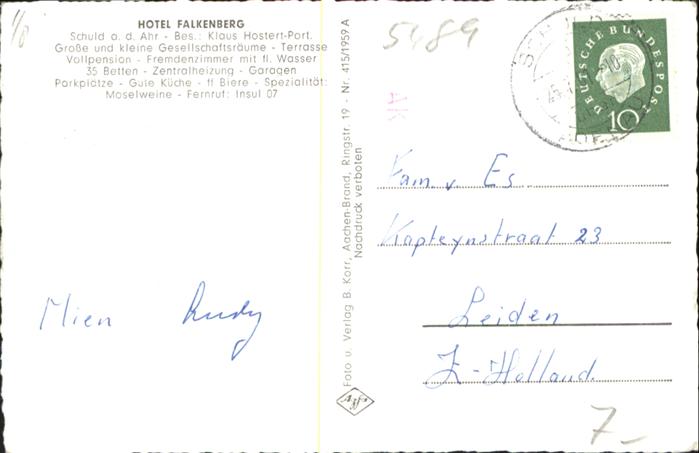 HOTEL FALKENBERG
Schuld a. d. Ahr - Bes.: Klaus Hostert-Port.
Große und kleine Gesellschaftsräume - Terrasse
Vollpension - Fremdenzimmer mit fl. Wasser
35 Betten - Zentralheizung - Garagen
Parkplätze - Gute Küche - ff Biere - Spezialität:
Moselweine - Fernruf: Insul 07
Mien Rudy
Foto u. Verlag B. Korr, Aachen-Brand, Ringstr. 19 - Nr. 415/1959 A
Nachdruck verboten
Agfa
5489
AK
DEUTSCHE BUNDESPOST
10
Fam. v. Es
Kapteynstraat 23
Leiden
Z-Holland.
7-